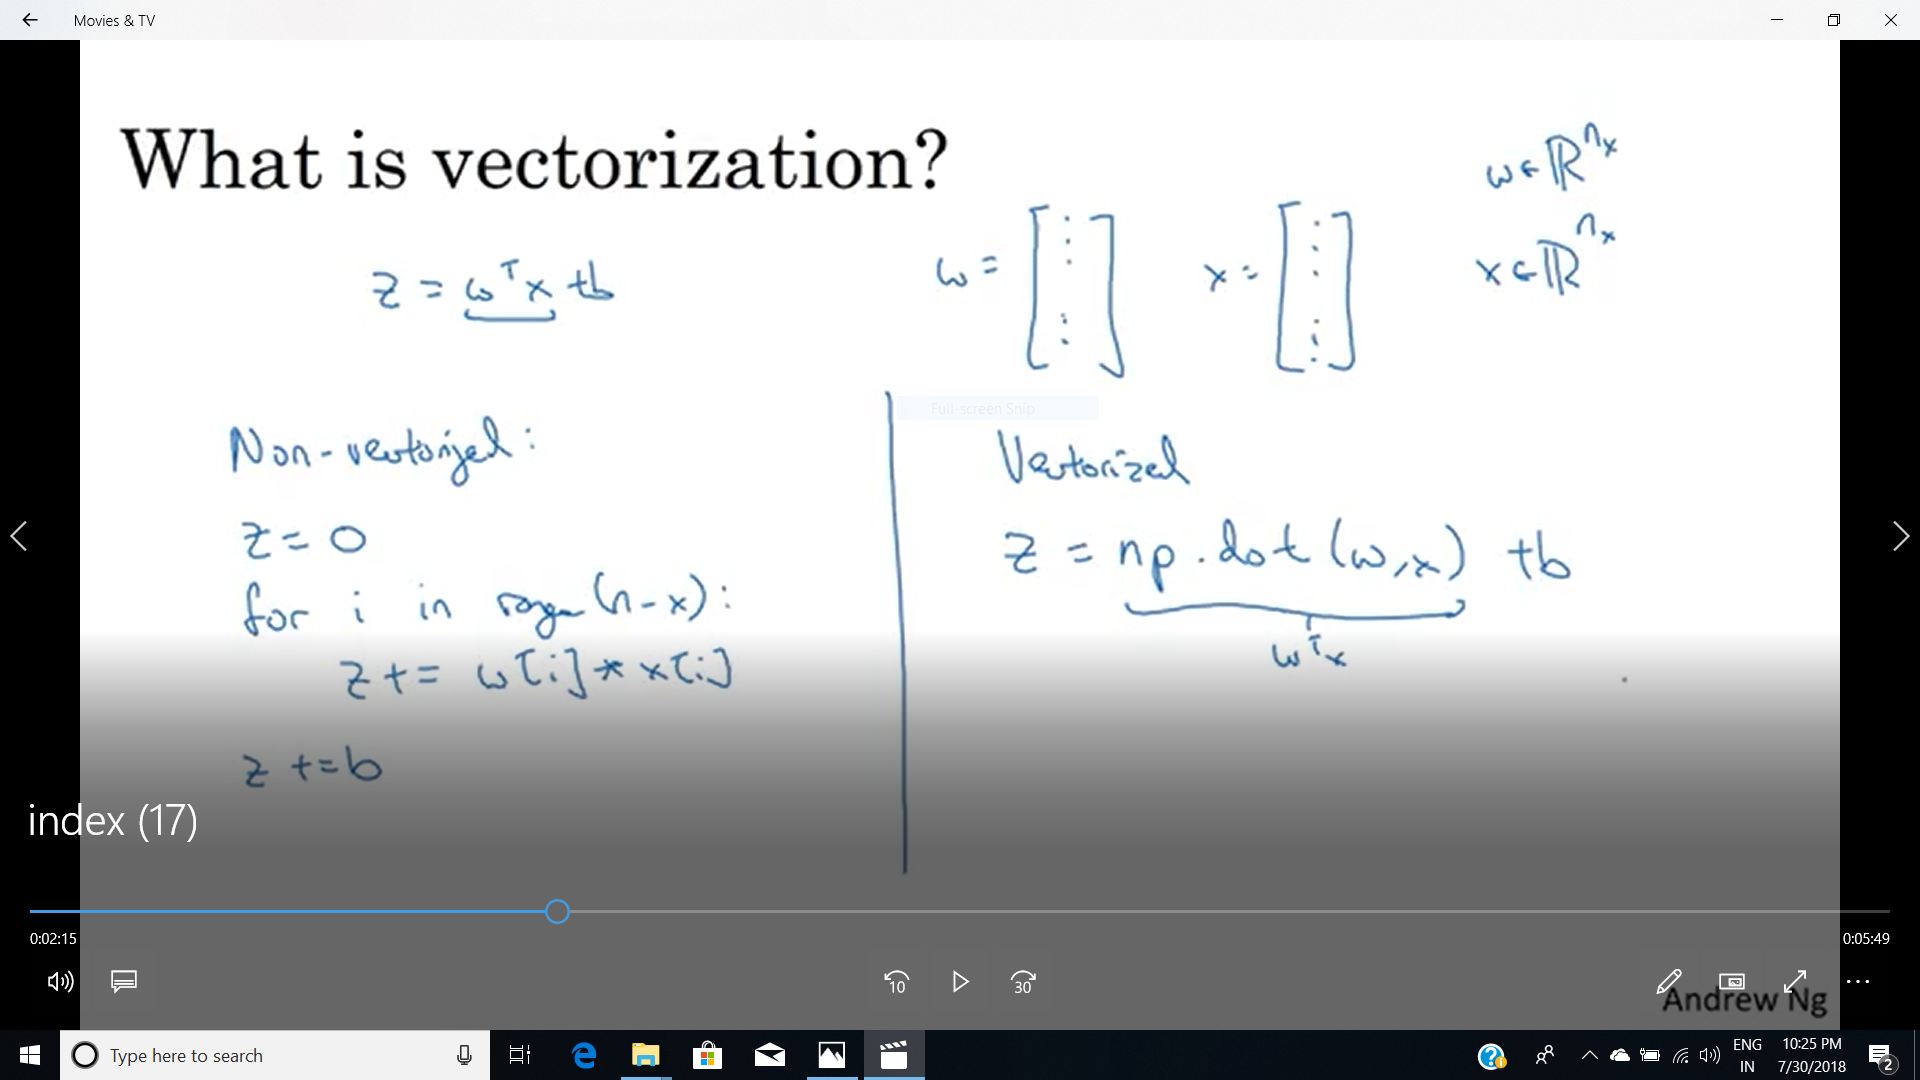 Movies & TV
What is vectorization?
z = wᵀx + b
w =
x =
w ∈ ℝⁿˣ
x ∈ ℝⁿˣ
Full-screen Snip
Non-vectorized:
z = 0
for i in range(n-x):
z += w[i] * x[i]
z += b
Vectorized
z = np.dot(w,x) + b
wᵀx
index (17)
0:02:15
0:05:49
10
30
Andrew Ng
Type here to search
ENG
IN
10:25 PM
7/30/2018
2